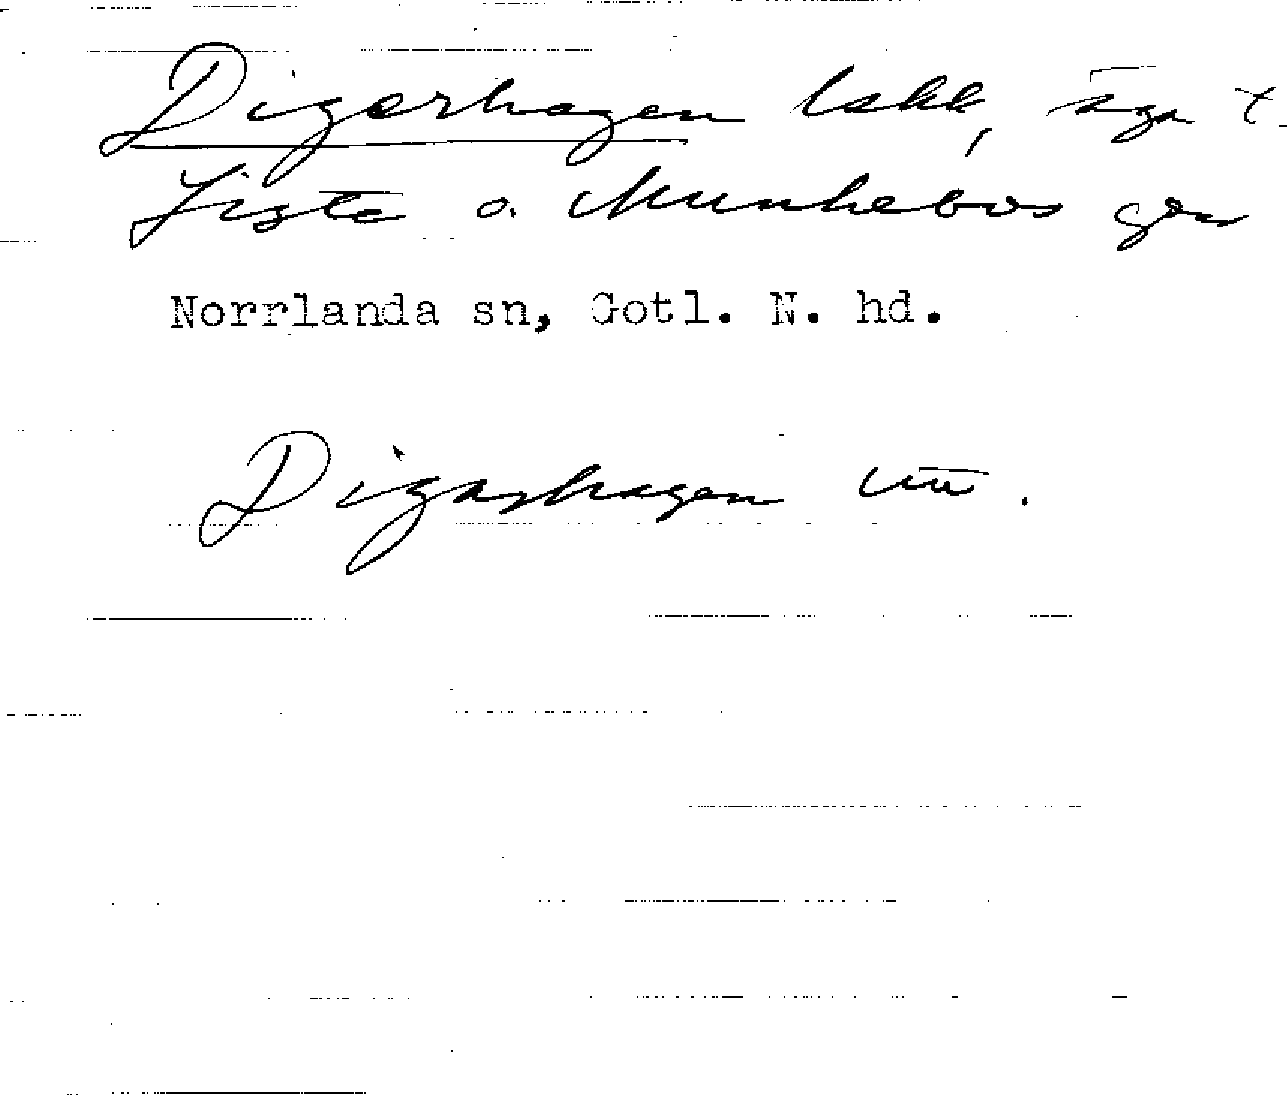 Digerhagen lskk, äga t.
Liste o. Munkebos gen
Norrlanda sn, Gotl. N. hd.
Digarhagen utt.